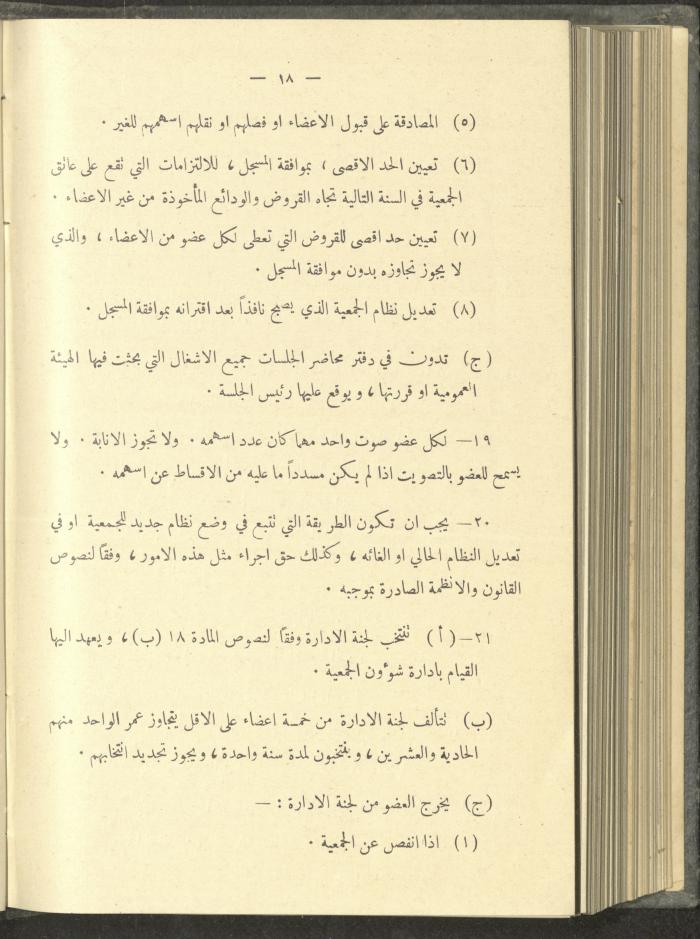 — ١٨ —
(٥) المصادقة على قبول الاعضاء او فصلهم او نقلهم اسهمهم للغير .
(٦) تعيين الحد الاقصى ، بموافقة المسجل ، للالتزامات التي تقع على عاتق
الجمعية في السنة التالية تجاه القروض والودائع المأخوذة من غير الاعضاء .
(٧) تعيين حد اقصى للقروض التي تعطى لكل عضو من الاعضاء ، والذي
لا يجوز تجاوزه بدون موافقة المسجل .
(٨) تعديل نظام الجمعية الذي يصبح نافذاً بعد اقترانه بموافقة المسجل .
(ج) تدون في دفتر محاضر الجلسات جميع الاشغال التي بحثت فيها الهيئة
العمومية او قررتها ، ويوقع عليها رئيس الجلسة .
١٩— لكل عضو صوت واحد مهما كان عدد اسهمه . ولا تجوز الانابة . ولا
يسمح للعضو بالتصويت اذا لم يكن مسدداً ما عليه من الاقساط عن اسهمه .
٢٠— يجب ان تكون الطريقة التي تتبع في وضع نظام جديد للجمعية او في
تعديل النظام الحالي او الغائه ، وكذلك حق اجراء مثل هذه الامور ، وفقاً لنصوص
القانون والانظمة الصادرة بموجبه .
٢١— (أ) تنتخب لجنة الادارة وفقاً لنصوص المادة ١٨ (ب) ، ويعهد اليها
القيام بادارة شوءون الجمعية .
(ب) تتألف لجنة الادارة من خمسة اعضاء على الاقل يتجاوز عمر الواحد منهم
الحادية والعشرين ، وينتخبون لمدة سنة واحدة ، ويجوز تجديد انتخابهم .
(ج) يخرج العضو من لجنة الادارة : —
(١) اذا انفصل عن الجمعية .